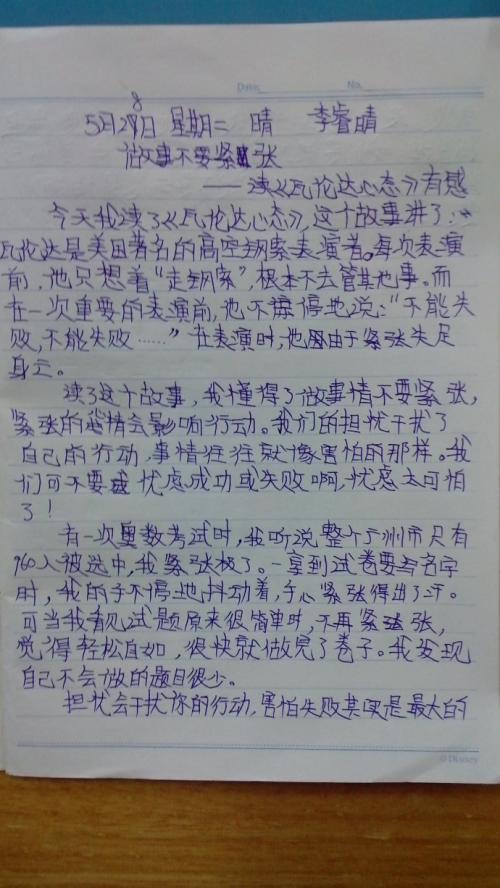 Date. No.
5月28日 星期二 晴 李睿晴
做事不要紧张
——读《瓦伦达心态》有感
今天我读了《瓦伦达心态》,这个故事讲了:
瓦伦达是美国著名的高空钢索表演者。每次表演
前,他只想着“走钢索”,根本不去管其他事。而
在一次重要的表演前,他不停地说:“不能失
败,不能失败……”在表演时,他因由于紧张失足
身亡。
读了这个故事,我懂得了做事情不要紧张,
紧张的心情会影响行动。我们的担忧干扰了
自己的行动,事情往往就像害怕的那样。我
们可不要忧虑成功或失败啊,忧虑太可怕
了!
有一次奥数考试时,我听说整个广州市只有
960人被选中,我紧张极了。一拿到试卷要写名字
时,我的手不停地抖动着,手心紧张得出了汗。
可当我看见试题原来很简单时,不再紧张,
觉得轻松自如,很快就做完了卷子。我发现
自己不会做的题目很少。
担忧会干扰你的行动,害怕失败其实是最大的
©Disney